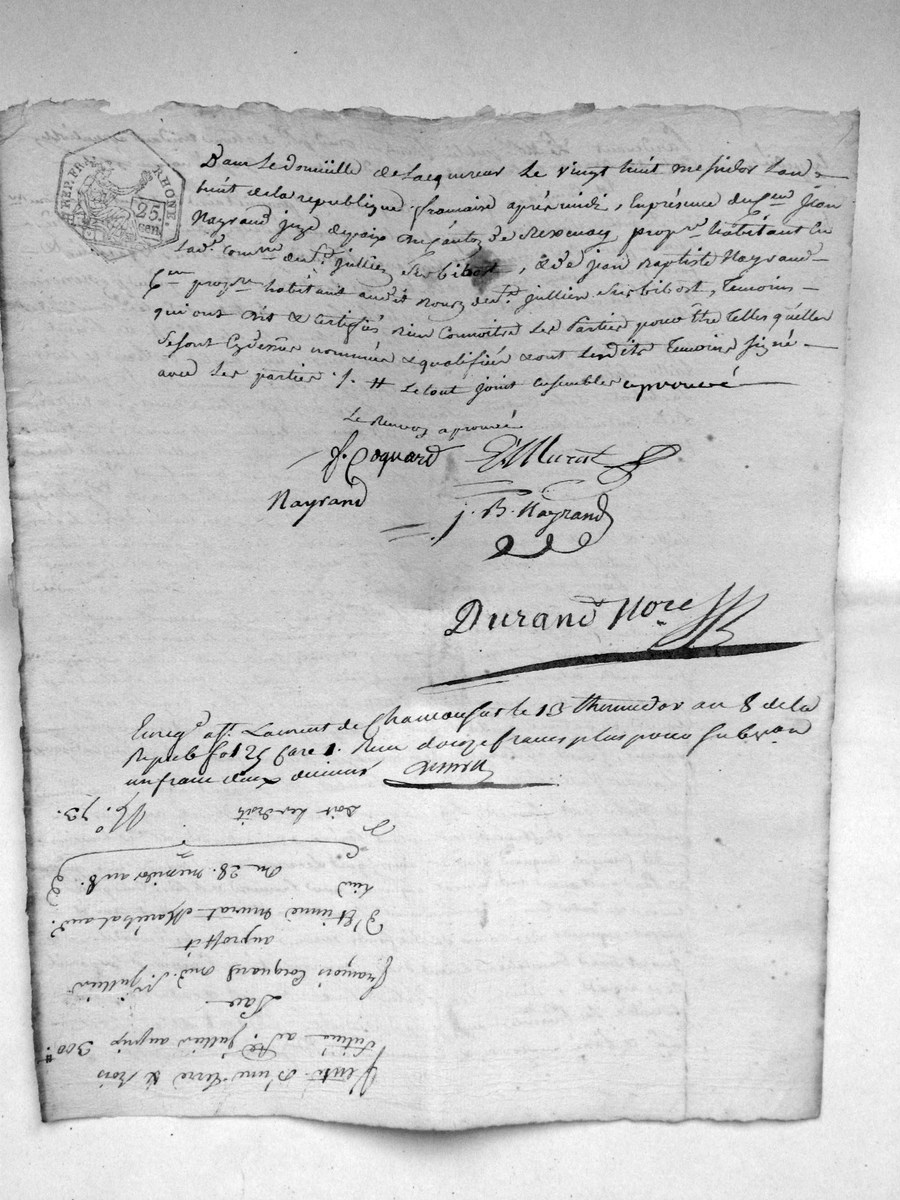 REP. FRA.
RHONE.
25.
cen.
Dans le domicille de lacquereur le vingt huit messidor lan
huit de la republique francaise après midi, En présence du Cen Jean
Nayrand juge depaix du canton de propre habitant en
lad. commne de St. jullien Sur bibost, & de jean Baptiste Nayrand
Cen propre habitant audit de St. jullien Sur bibost, Temoins
qui ont dit & certifiés bien Connoitre Les Parties pour être telles quelles
Se sont Cydessus nommées & qualifiée & ont Lesdits Temoins Signé
avec Les parties ./. # Le tout joint ensembles aprouvé
Le Renvoy aprouvé
f. Coquard E Murat
Nayrand
j. B. Nayrand
Durand Nore
Enregé à St. Laurent de Chamousset le 13 thermidor an 8 de la
Repub. fo 125 Care 1. Reçu douze francs plus pour Subvon
un franc deux decimes
Vente d'une Terre & Bois
Située a St. jullien au prix 300#
Par
François Coquard dud. St. jullien
au proffit
d'Etienne Murat Maréchal aud.
lieu
Du 28. messidor an 8.
doit les droits
No. 73.